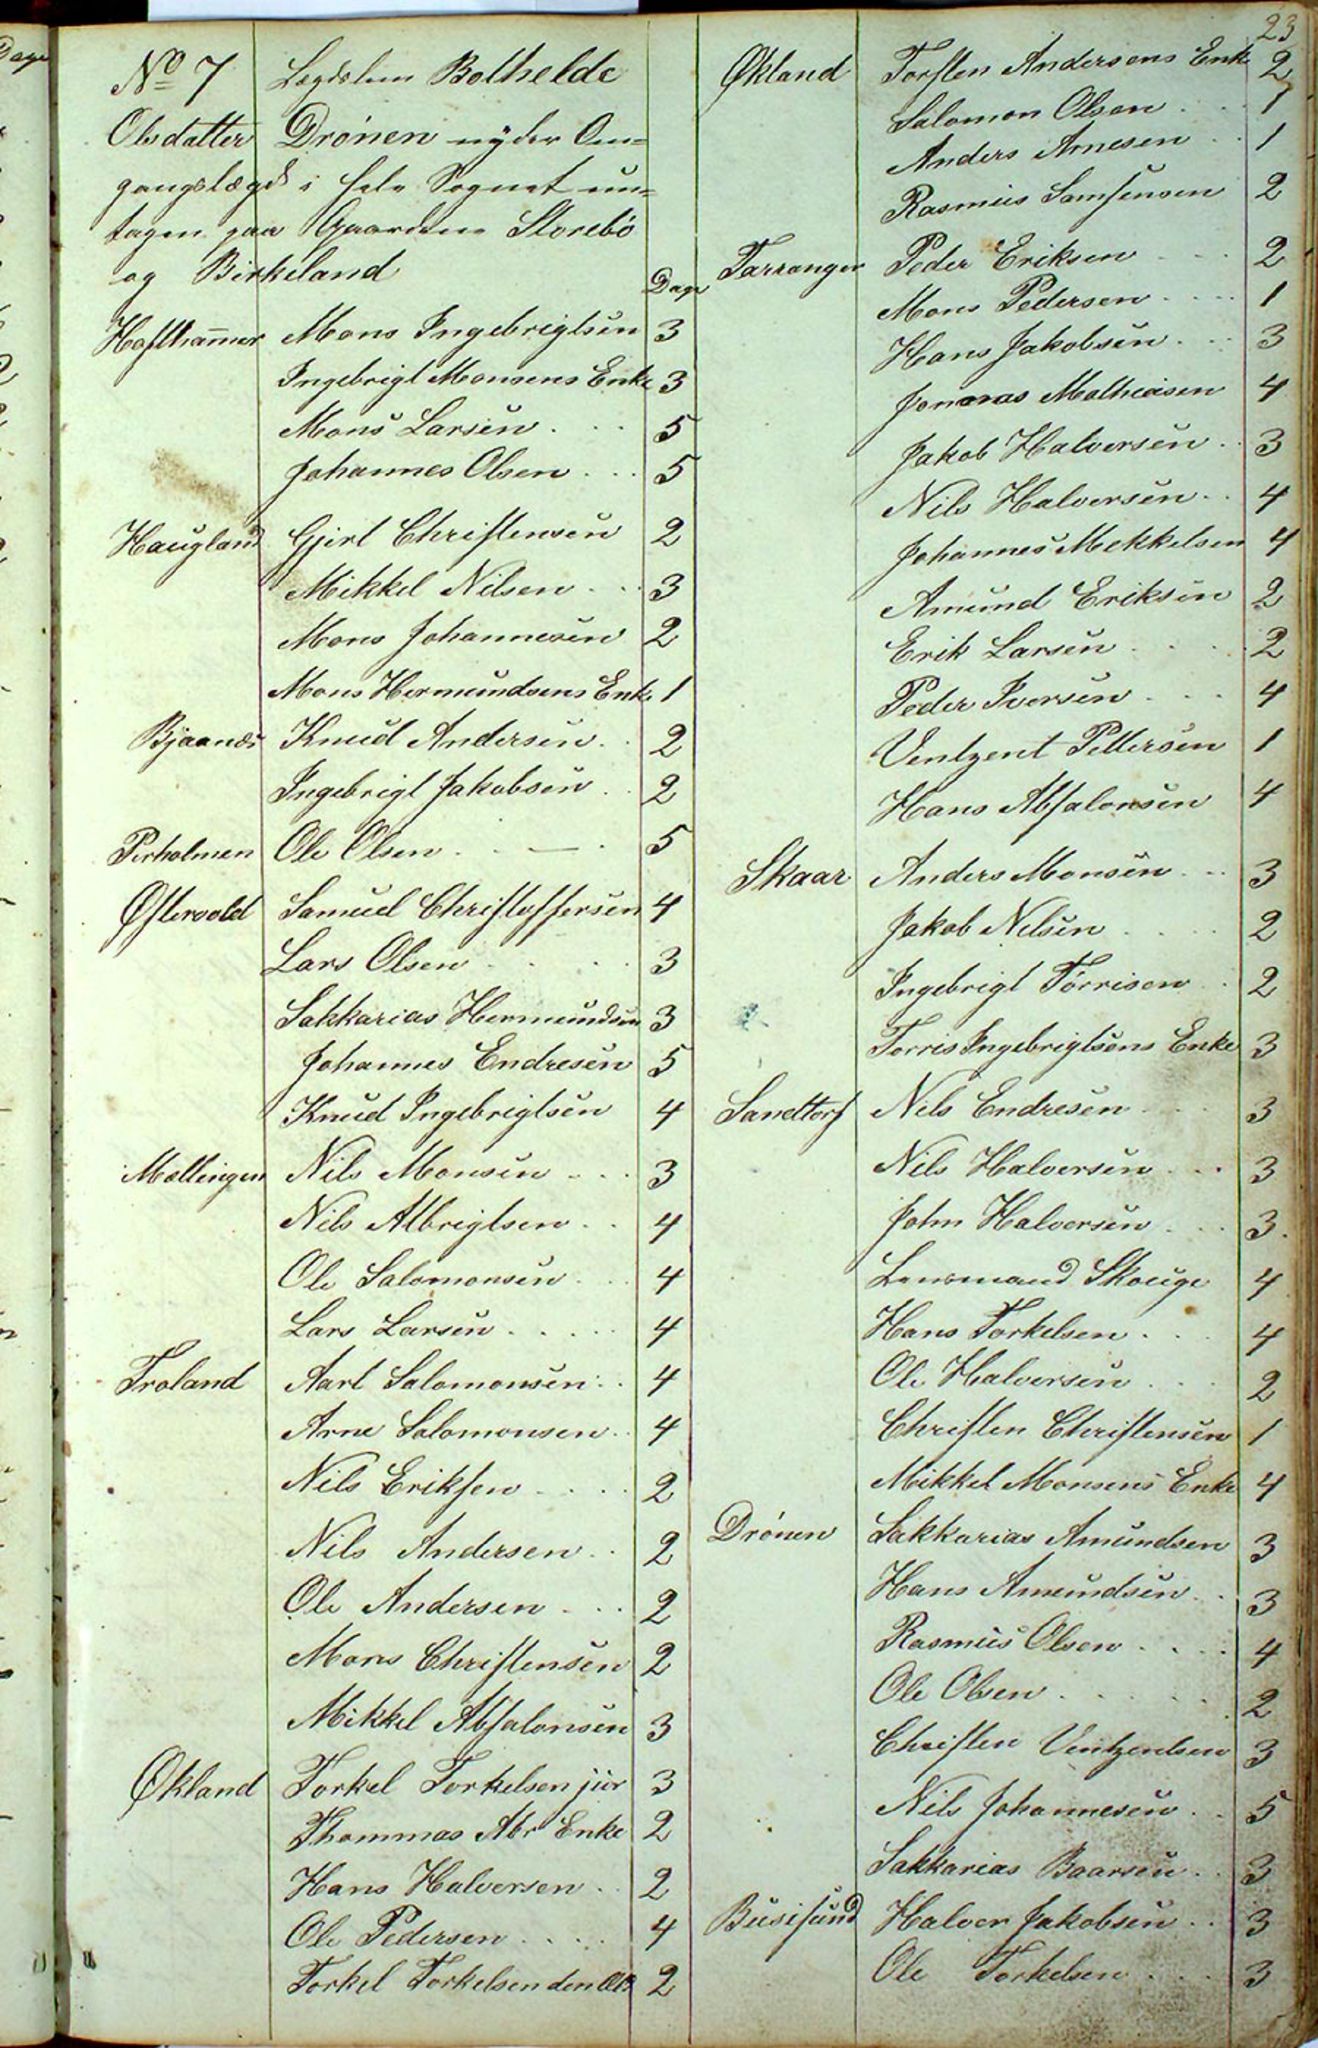 23
No 7 Lægdslem Bothelde
Olsdatter Drønen nyder Om=
gangslægd i hele Sognet un=
tagen paa Gaardene Storebø
og Birkeland
Dage
Hofthammer Mons Ingebrigtsen 3
Ingebrigt Monsens Enke 3
Mons Larsen . . . 5
Johannes Olsen . . . 5
Haugland Gjert Christensen 2
Mikkel Nilsen . . 3
Mons Johannesen 2
Mons Hermundsens Enke 1
Bjaanæs Knud Andersen . . 2
Ingebrigt Jakobsen . . 2
Perholmen Ole Olsen . . — . 5
Østervold Samuel Christoffersen 4
Lars Olsen . . . . 3
Sakkarias Hermundsen 3
Johannes Endresen 5
Knud Ingebrigtsen 4
Møllingen Nils Monsen . . . 3
Nils Albrigtsen . . 4
Ole Salomonsen . . 4
Lars Larsen . . . . . 4
Troland Aart Salomonsen . . 4
Arne Salomonsen . . 4
Nils Eriksen . . . . 2
Nils Andersen . . 2
Ole Andersen . . . 2
Mons Christensen 2
Mikkel Absalonsen 3
Økland Torkel Torkelsen jür 3
Thommas Abr Enke 2
Hans Halversen . . 2
Ole Pedersen . . . . 4
Torkel Torkelsen den Æld 2
Økland Torsten Andersens Enke 2
Salomon Olsen . . . 1
Anders Arnesen . . 1
Rasmus Samsensen 2
Tarranger Peder Eriksen . . . 2
Mons Pedersen . . . . 1
Hans Jakobsen . . . 3
Jonaras Mathiasen 4
Jakob Halversen . . 3
Nils Halversen . . 4
Johannes Mekkelsen 4
Amund Eriksen 2
Erik Larsen . . . . 2
Peder Iversen . . . 4
Ventzent Pettersen 1
Hans Absalonsen 4
Skaar Anders Monsen . . 3
Jakob Nilsen . . . . 2
Ingebrigt Tørrisen . 2
Torris Ingebrigtsens Enke 3
Sandtorf Nils Endresen . . 3
Nils Halversen . . . 3
John Halversen . . . 3.
Lensmand Skouge 4
Hans Torkelsen . . . 4
Ole Halversen . . . 2
Christen Christensen 1
Mikkel Monsens Enke 4
Drønen Sakkarias Amundsen 3
Hans Amundsen . . 3
Rasmus Olsen . . . . 4
Ole Olsen . . . . . . 2
Christen Ventzentsen 3
Nils Johannesen . . 5
Sakkarias Baarsen . . 3
Busisund Halvor Jakobsen . . 3
Ole Torkelsen . . . 3